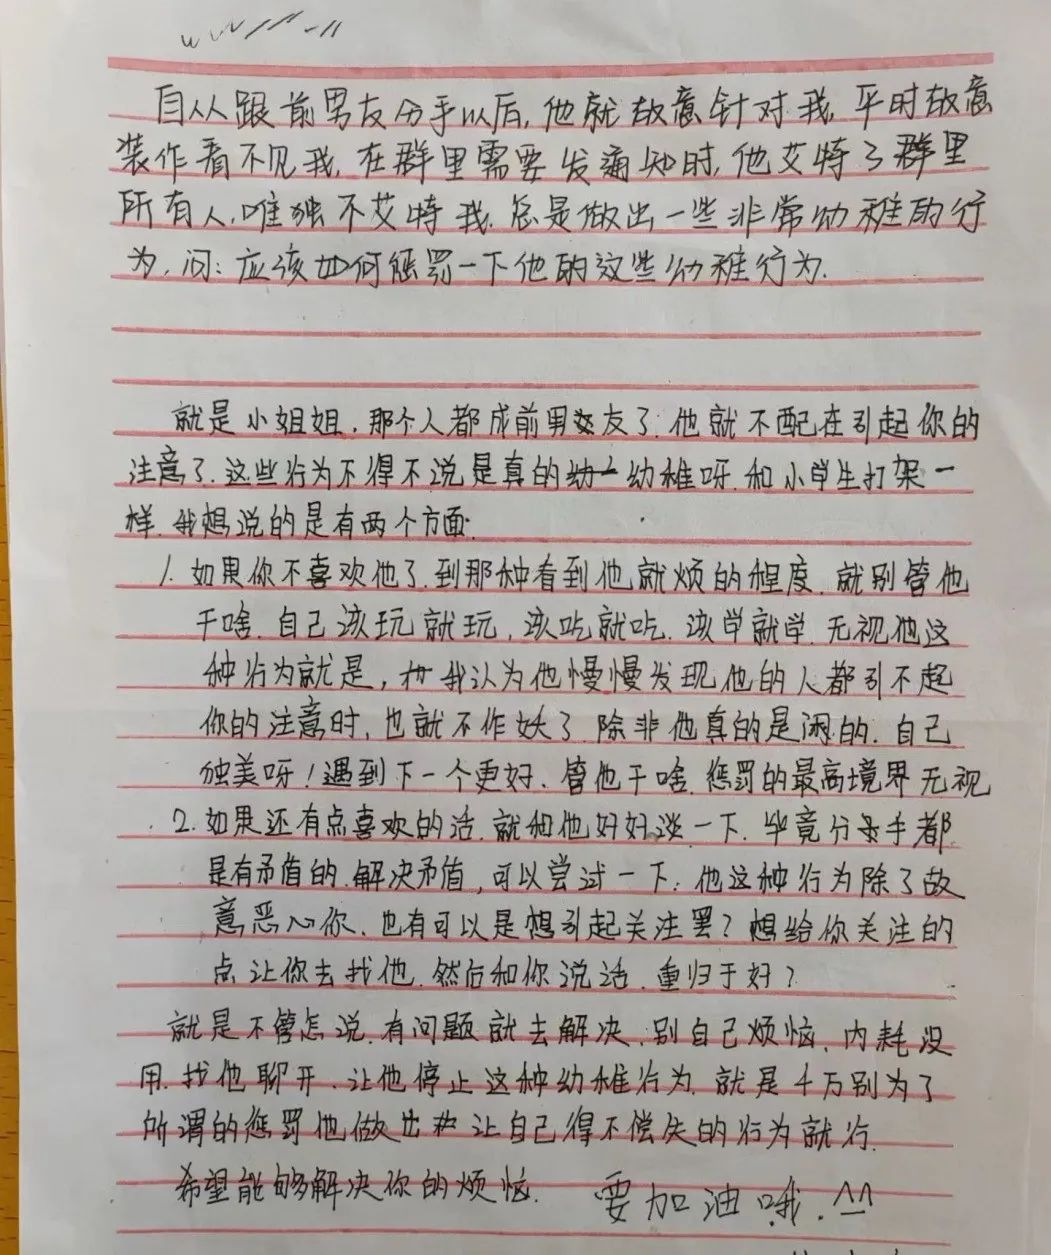 自从跟前男友分手以后,他就故意针对我,平时故意
装作看不见我,在群里需要发通知时,他艾特了群里
所有人,唯独不艾特我,总是做出一些非常幼稚的行
为,问:应该如何惩罚一下他的这些幼稚行为.
就是小姐姐,那个人都成前男友了.他就不配在引起你的
注意了.这些行为不得不说是真的幼稚呀.和小学生打架一
样.我想说的是有两个方面:
1.如果你不喜欢他了.到那种看到他就烦的程度.就别管他
干啥.自己该玩就玩,该吃就吃.该学就学.无视他这
种行为就是,我认为他慢慢发现他的人都引不起
你的注意时,也就不作妖了.除非他真的是闲的.自己
独美呀!遇到下一个更好.管他干啥.惩罚的最高境界无视
2.如果还有点喜欢的话.就和他好好谈一下.毕竟分手都
是有矛盾的.解决矛盾,可以尝试一下.他这种行为除了故
意恶心你.也有可以是想引起关注罢?想给你关注的
点让你去找他.然后和你说话.重归于好?
就是不管怎说.有问题就去解决.别自己烦恼.内耗没
用.找他聊开.让他停止这种幼稚行为.就是千万别为了
所谓的惩罚他做出让自己得不偿失的行为就行.
希望能够解决你的烦恼. 要加油哦.^^